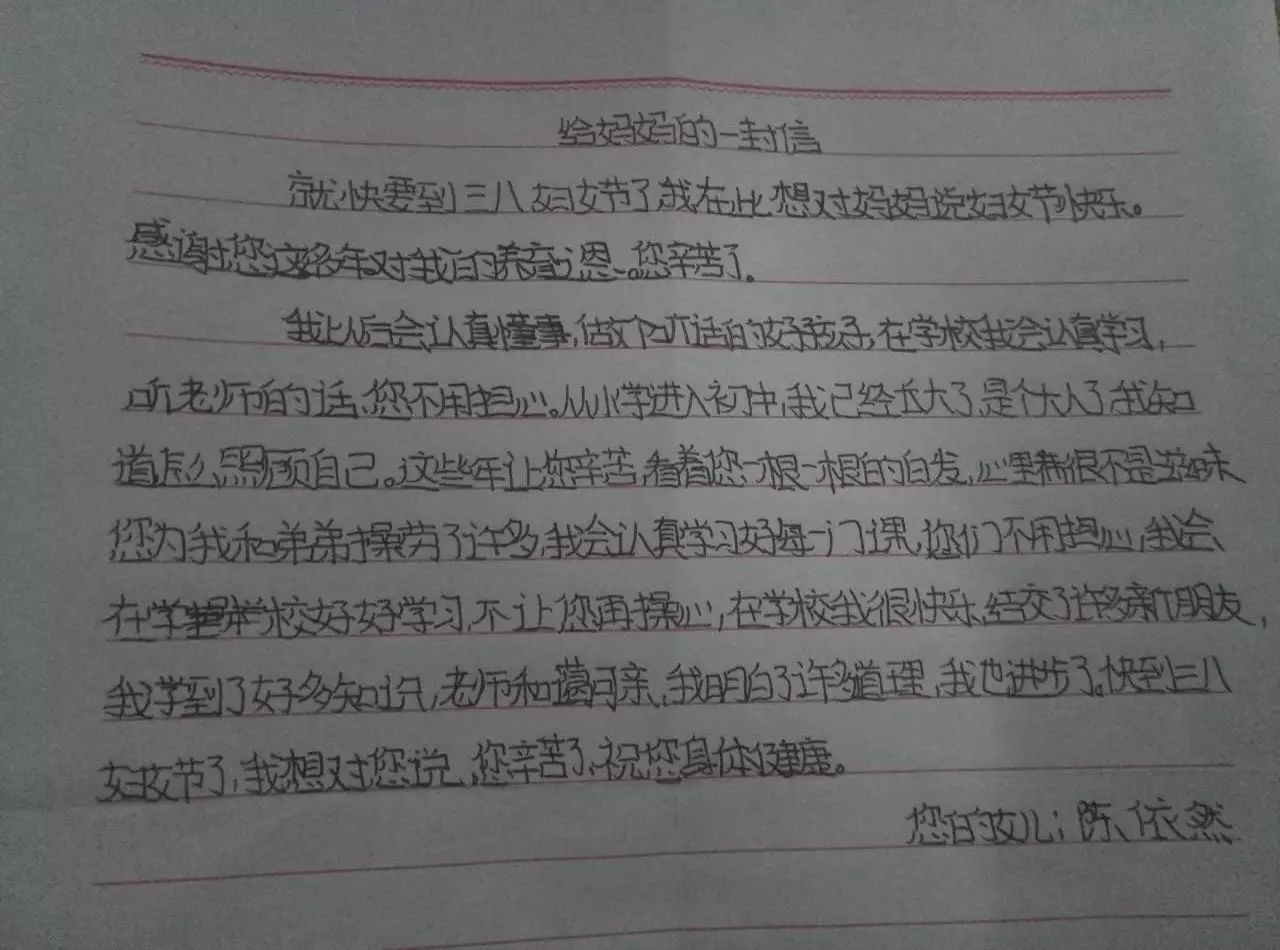 给妈妈的一封信
就快要到三八妇女节了,我在此想对妈妈说妇女节快乐。
感谢您这多年对我的养育之恩。您辛苦了.
我以后会认真懂事,做个听话的好孩子,在学校我会认真学习,
听老师的话,您不用担心。从小学进入初中,我已经长大了,是个大人了,我知
道怎么照顾自己。这些年让您辛苦,看着您一根一根的白发,心里很不是滋味
您为我和弟弟操劳了许多,我会认真学习好每一门课,你们不用担心,我会
在学校好好学习,不让您再操心,在学校我很快乐,结交了许多新朋友,
我学到了好多知识,老师和蔼可亲,我明白了许多道理,我也进步了。快到三八
妇女节了,我想对您说,您辛苦了,祝您身体健康。
您的女儿:陈依然